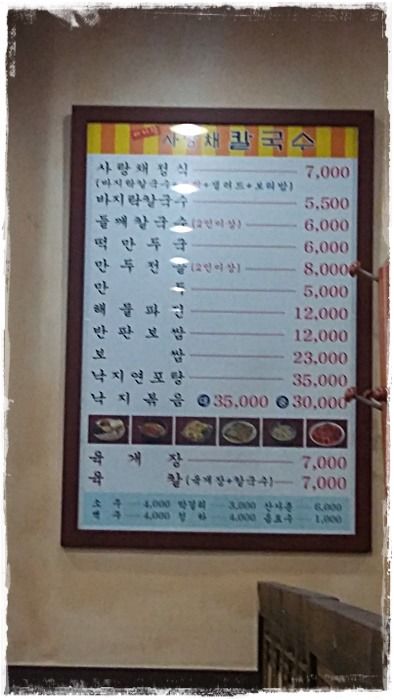 사랑채 칼국수
사랑채정식 7,000
(바지락칼국수+ +샐러드+보리밥)
바지락칼국수 5,500
들깨칼국수(2인이상) 6,000
떡만두국 6,000
만두전골(2인이상) 8,000
만두 5,000
해물파전 12,000
반판보쌈 12,000
보쌈 23,000
낙지연포탕 35,000
낙지볶음 대 35,000 중 30,000
육개장 7,000
육칼(육개장+칼국수) 7,000
소주 4,000 막걸리 3,000 산사춘 6,000
맥주 4,000 청하 4,000 음료수 1,000